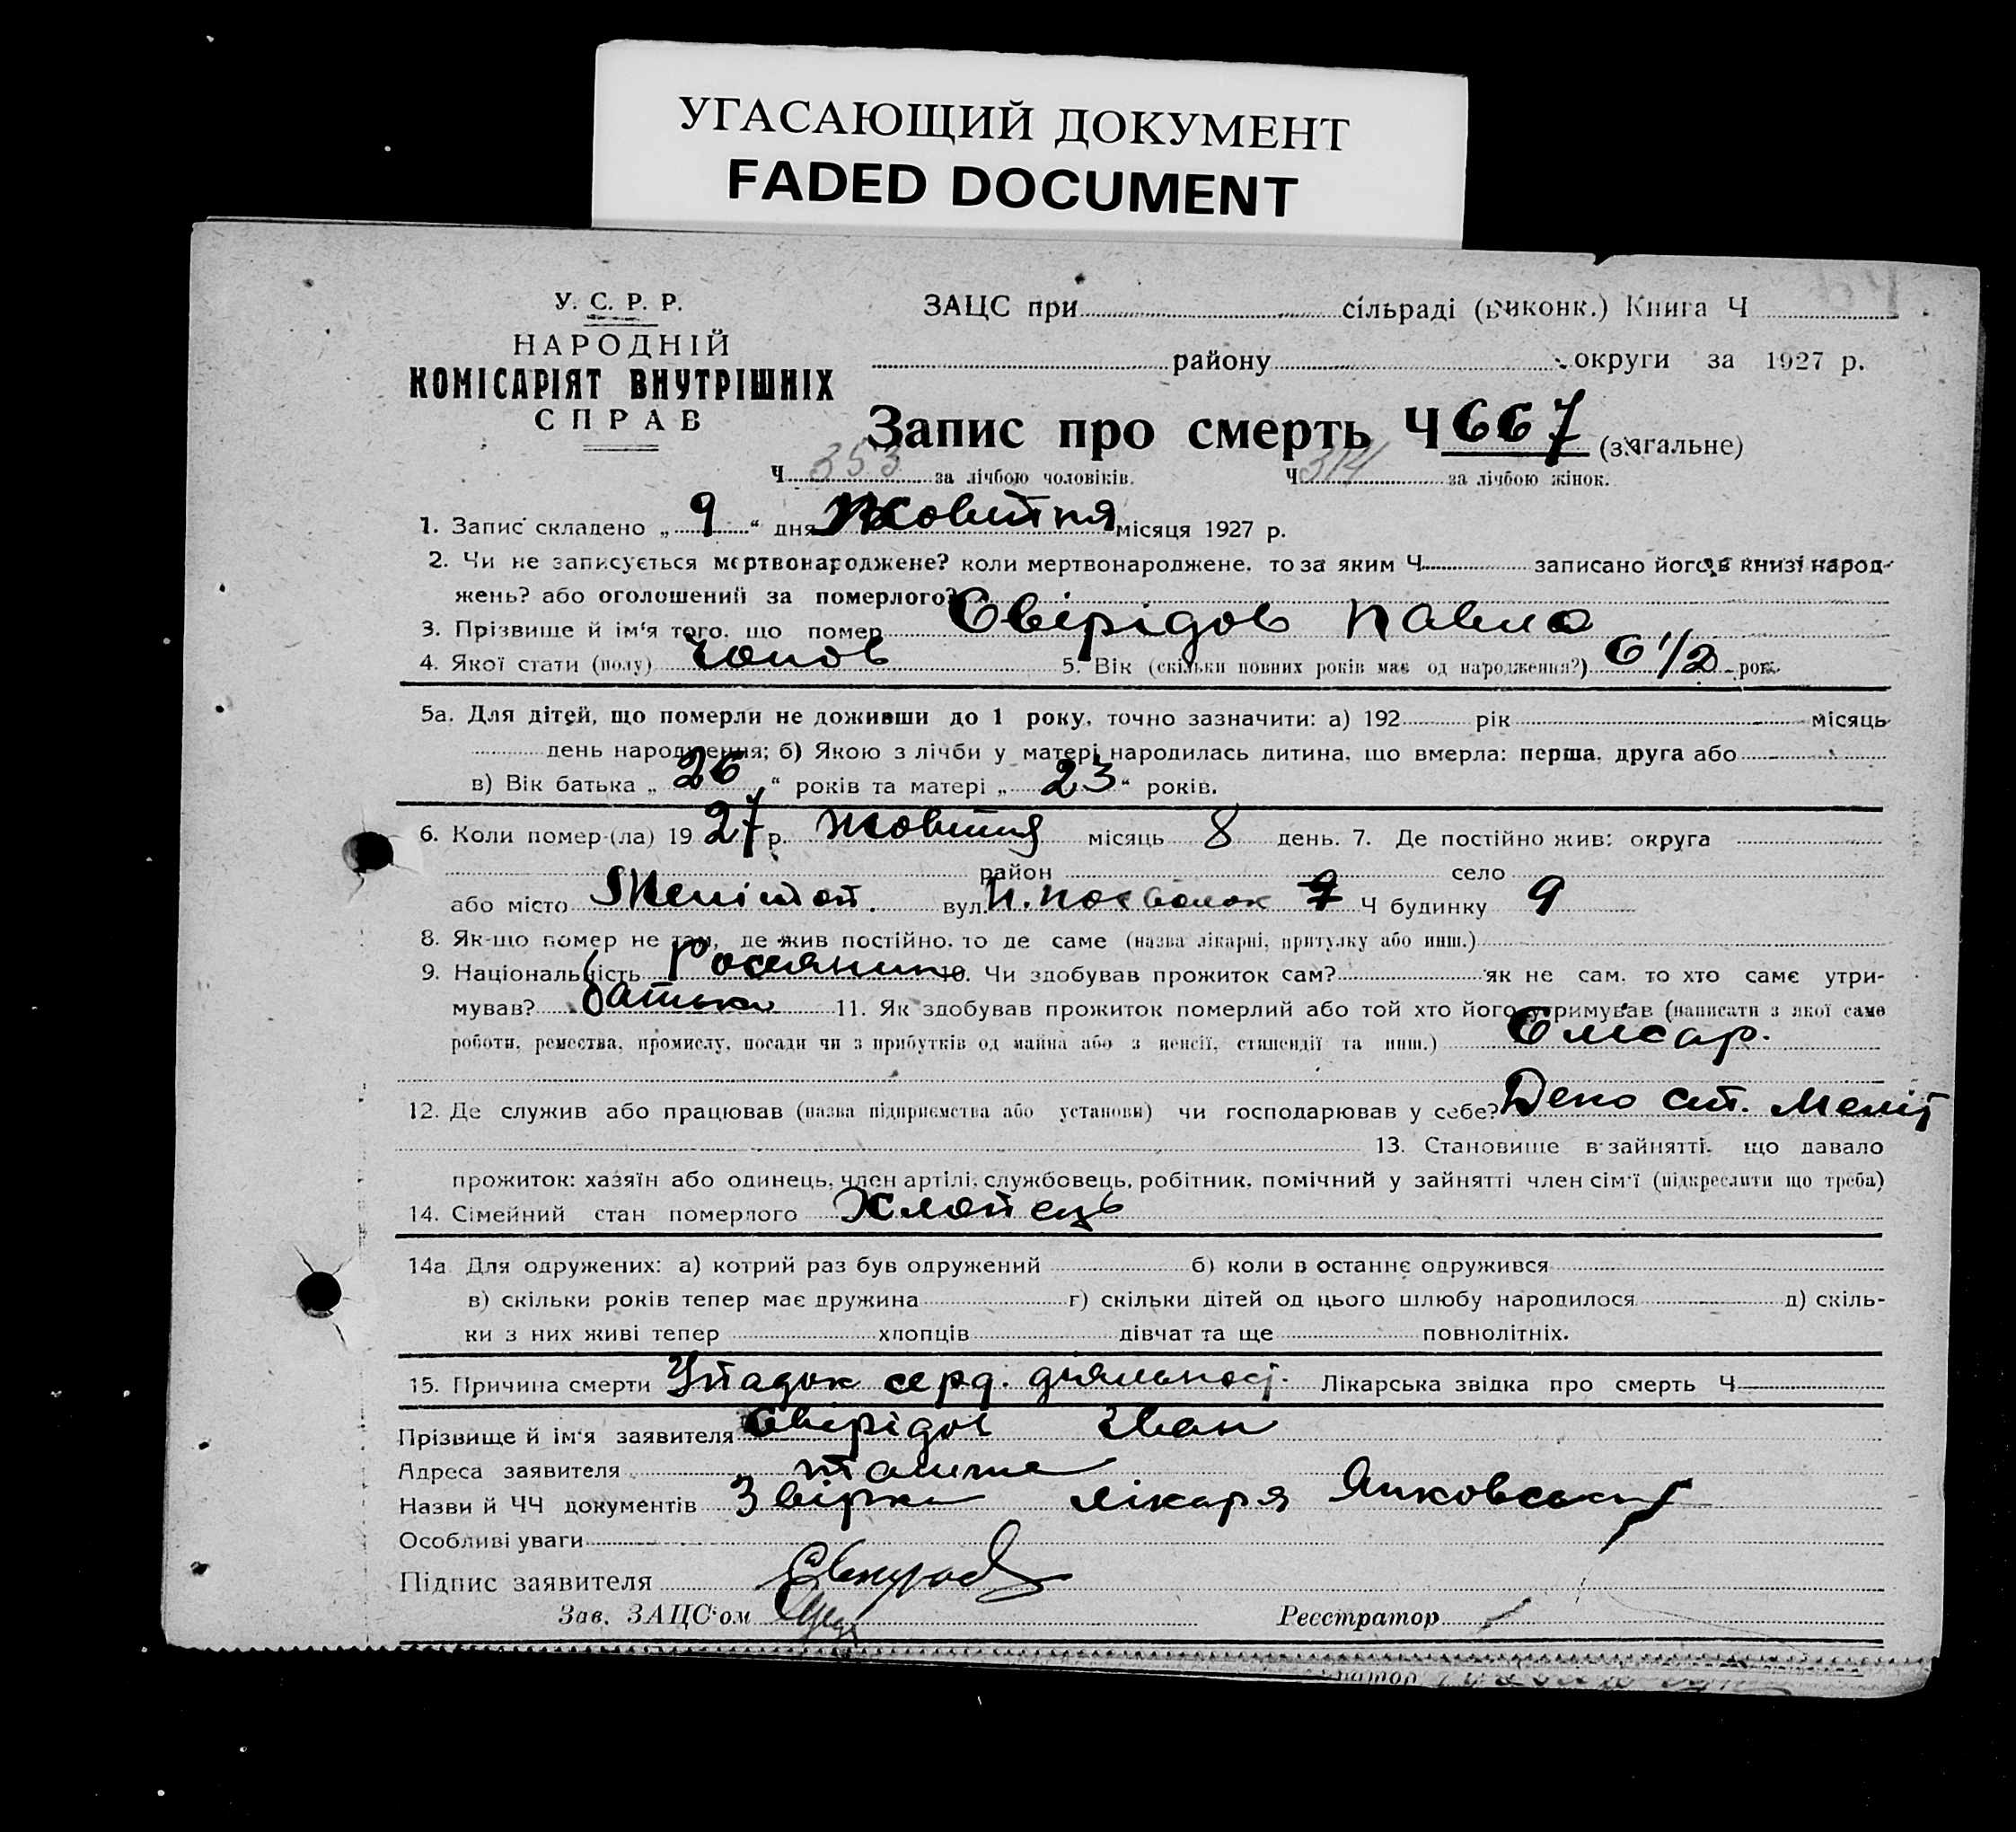 УГАСАЮЩИЙ ДОКУМЕНТ
FADED DOCUMENT
У. С. Р. Р.
НАРОДНІЙ
КОМІСАРІЯТ ВНУТРІШНІХ
СПРАВ
ЗАЦС при сільраді (виконк.) Книга Ч
району округи за 1927 р.
Запис про смерть Ч 667 (загальне)
Ч 353 за лічбою чоловіків. Ч 314 за лічбою жінок.
1. Запис складено „ 9 “ дня Жовтня місяця 1927 р.
2. Чи не записується мертвонароджене? коли мертвонароджене, то за яким Ч записано його в книзі народ-
жень? або оголошений за померлого?
3. Прізвище й ім'я того, що помер Свірідов Павло
4. Якої стати (полу) Чолов 5. Вік (скільки повних років має од народження?) 6 1/2 рок.
5а. Для дітей, що померли не доживши до 1 року, точно зазначити: а) 192 рік місяць
день народження; б) Якою з лічби у матері народилась дитина, що вмерла: перша, друга або
в) Вік батька „ 26 “ років та матері „ 23 “ років.
6. Коли помер (ла) 1927 р. Жовтня місяць 8 день. 7. Де постійно жив: округа
район село
або місто Меліт вул. Н. 9 Ч будинку 9
8. Як-що помер не там, де жив постійно, то де саме (назва лікарні, притулку або инш.)
9. Національність Росіянин 10. Чи здобував прожиток сам? як не сам, то хто саме утри-
мував? батько 11. Як здобував прожиток померлий або той хто його утримував (написати з якої саме
роботи, ремества, промислу, посади чи з прибутків од майна або з пенсії, стипендії та инш.) Слюсар.
12. Де служив або працював (назва підприємства або установи) чи господарював у себе? Депо ст. Меліт
13. Становище в зайнятті, що давало
прожиток: хазяїн або одинець, член артілі, службовець, робітник, помічний у зайнятті член сім'ї (підкреслити що треба)
14. Сімейний стан померлого Хлопець
14а Для одружених: а) котрий раз був одружений б) коли в останнє одружився
в) скільки років тепер має дружина г) скільки дітей од цього шлюбу народилося д) скіль-
ки з них живі тепер хлопців дівчат та ще повнолітніх.
15. Причина смерти Упадок серд. діяльності. Лікарська звідка про смерть Ч
Прізвище й ім'я заявителя Свірідов Іван
Адреса заявителя
Назви й ЧЧ документів лікаря Янковський
Особливі уваги
Підпис заявителя
Зав. ЗАЦС'ом Реєстратор